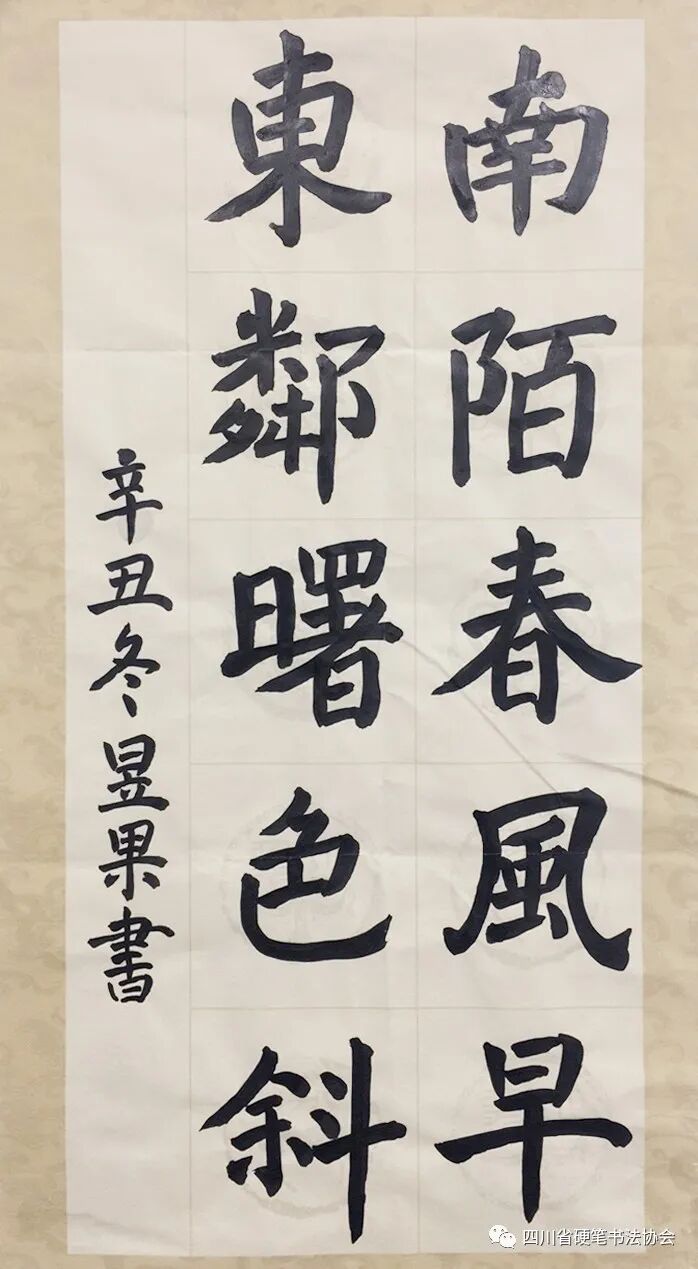 南陌春風早
東鄰曙色斜
辛丑冬昱果書
四川省硬笔书法协会